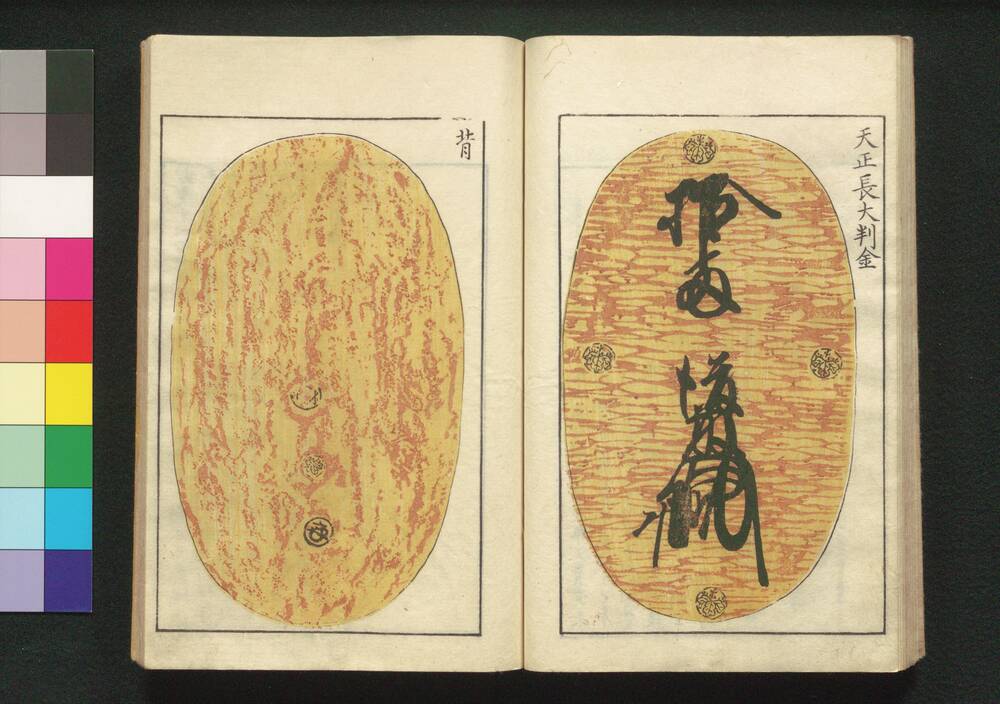 天正長大判金
拾両
後藤
背